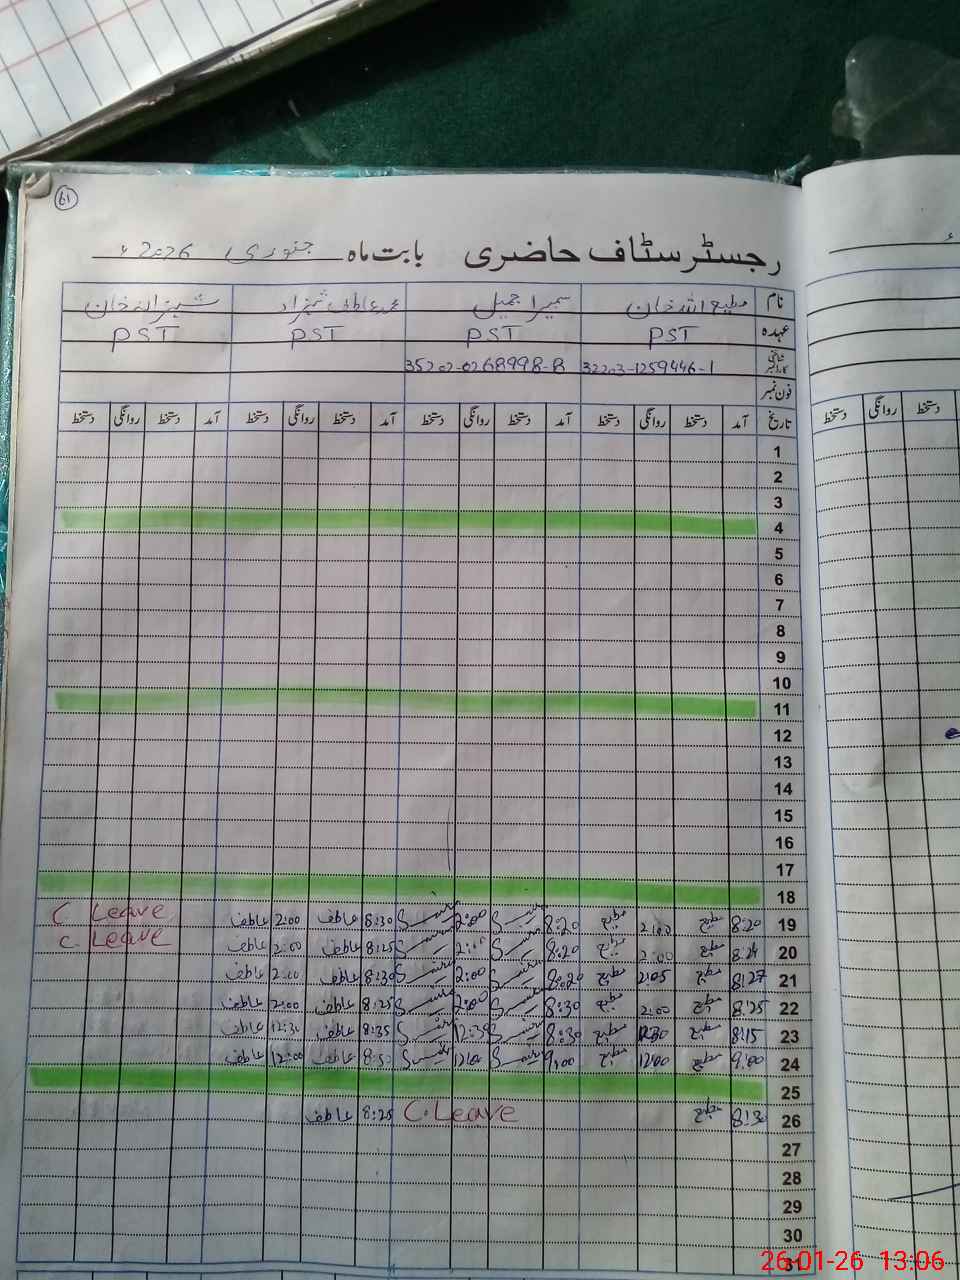 61
رجسٹر سٹاف حاضری بابت ماہ جنوری 2026ء
نام مطیع اللہ خان سمیرا جمیل محمد عاطف شہزاد
عہدہ PST PST PST PST
شناختی کارڈ نمبر 32203-1259446-1 35202-0268998-8
فون نمبر
تاریخ آمد دستخط روانگی دستخط آمد دستخط روانگی دستخط آمد دستخط روانگی دستخط آمد دستخط روانگی دستخط
روانگی دستخط دستخط
1
2
3
4
5
6
7
8
9
10
11
12
13
14
15
16
17
18
19 8:20 مطیع 2:00 مطیع 8:20 2:00 8:30 عاطف 2:00 عاطف C Leave
20 8:24 مطیع 2:00 مطیع 8:20 2:00 8:25 عاطف 2:00 عاطف C. Leave
21 8:27 مطیع 2:05 مطیع 8:20 2:00 8:30 عاطف 2:00 عاطف
22 8:25 مطیع 2:00 مطیع 8:30 2:00 8:25 عاطف 2:00 عاطف
23 8:15 مطیع 12:30 مطیع 8:30 12:35 8:35 عاطف 12:30 عاطف
24 9:00 مطیع 12:00 مطیع 9:00 12:00 8:50 عاطف 12:00 عاطف
25
26 8:30 مطیع C. Leave 8:25 عاطف
27
28
29
30
31
26-01-26 13:06